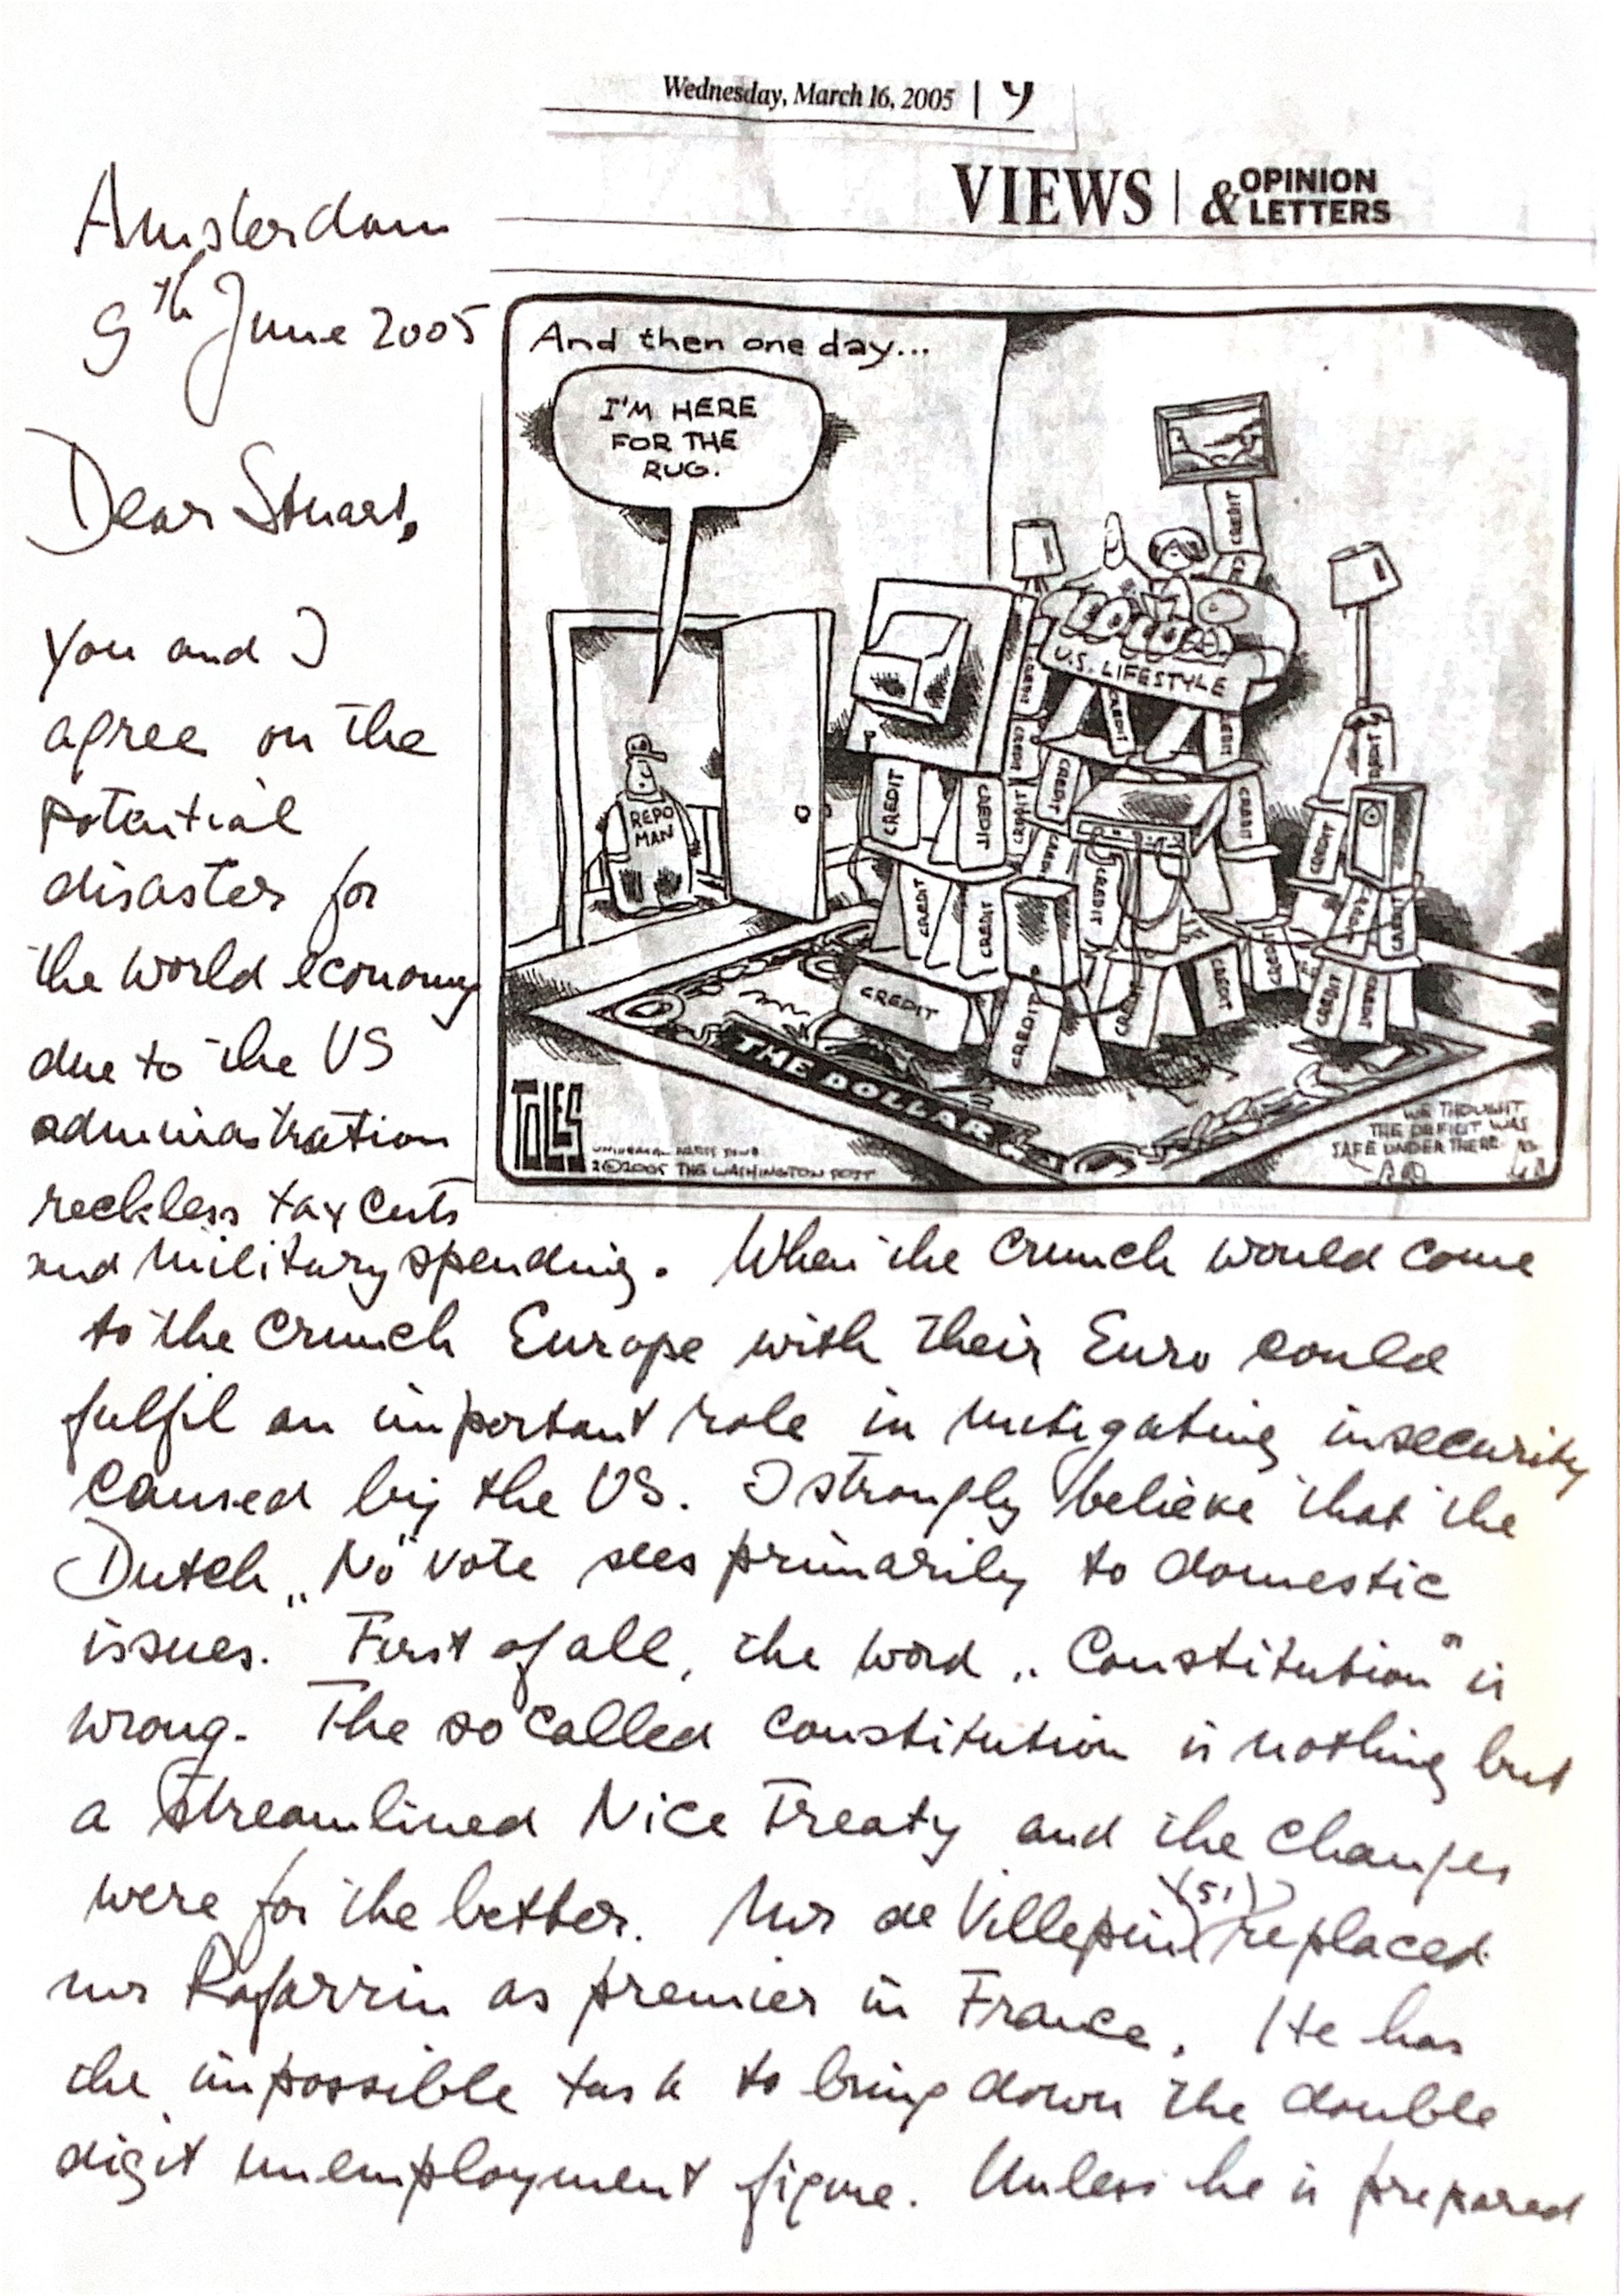 Wednesday, March 16, 2005 | 9
VIEWS | & OPINION
LETTERS
Amsterdam
9th June 2005
Dear Stuart,
And then one day...
I'M HERE
FOR THE
RUG.
REPO
MAN
U.S. LIFESTYLE
CREDIT
CREDIT
CREDIT
CREDIT
CREDIT
CREDIT
CREDIT
CREDIT
CREDIT
CREDIT
CREDIT
CREDIT
CREDIT
CREDIT
THE DOLLAR
TOLES
UNIVERSAL PRESS SYND.
©2005 THE WASHINGTON POST
WE THOUGHT
THE DEFICIT WAS
SAFE UNDER THERE
you and I
agree on the
potential
disaster for
the world economy
due to the US
administration
reckless tax cuts
and military spending. When the crunch would come
to the crunch Europe with their Euro could
fulfil an important role in mitigating insecurity
caused by the US. I strongly believe that the
Dutch „No" vote sees primarily to domestic
issues. First of all, the word „Constitution" is
wrong. The so called constitution is nothing but
a streamlined Nice Treaty and the changes
were for the better. Mr de Villepin (51) replaced
mr Rafarrin as premier in France. He has
the impossible task to bring down the double
digit unemployment figure. Unless he is prepared